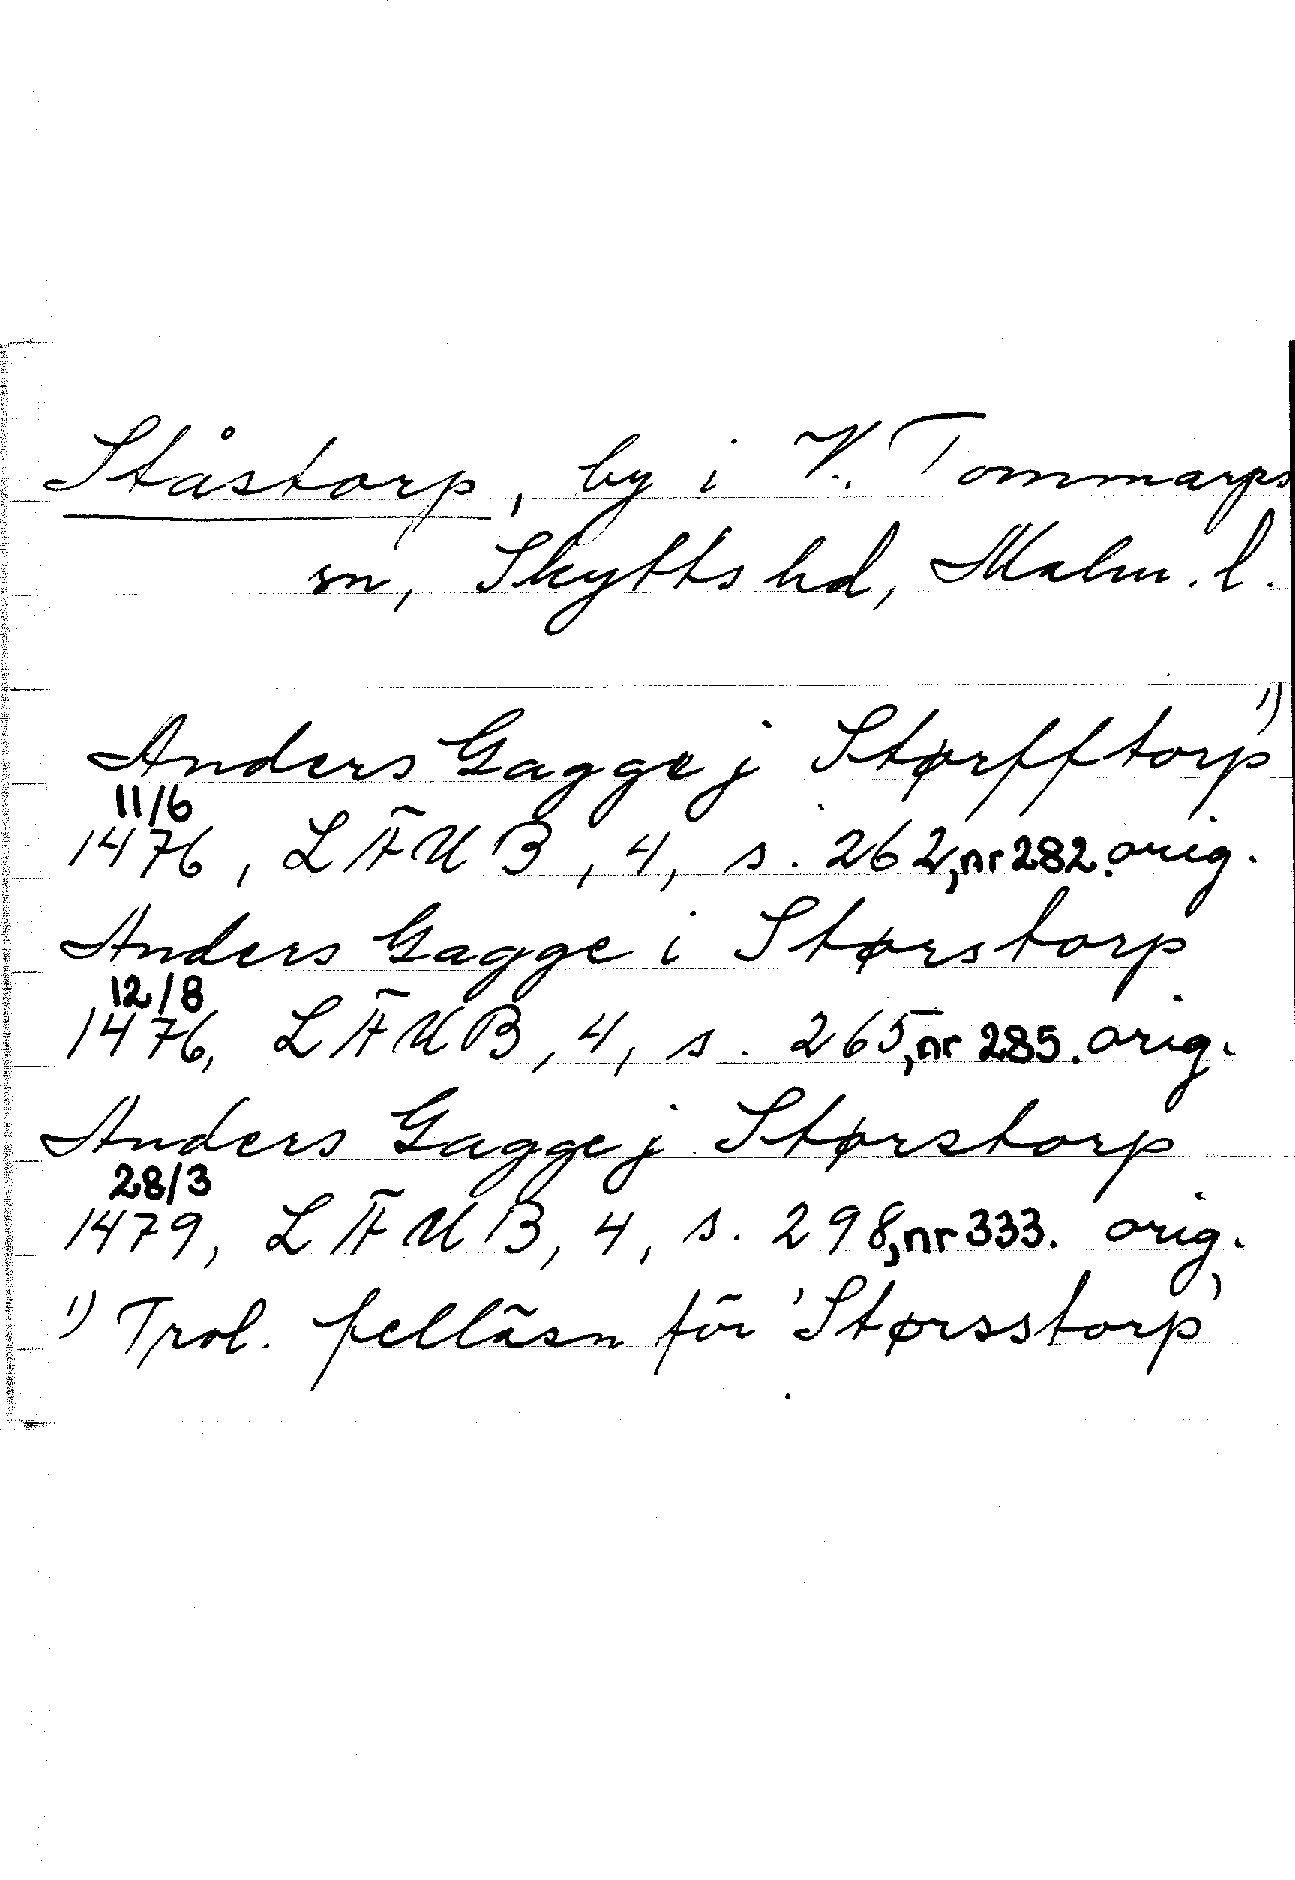 Ståstorp, by i V. Tommarps
sn, Skytts hd, Malm. l.
Anders Gagge j Størfftorp 1)
11/6
1476, LÄUB, 4, s. 262, nr 282. orig.
Anders Gagge i Størstorp
12/8
1476, LÄUB, 4, s. 265, nr 285. orig.
Anders Gagge j Størstorp
28/3
1479, LÄUB, 4, s. 298, nr 333. orig.
1) Trol. felläsn för 'Størsstorp'